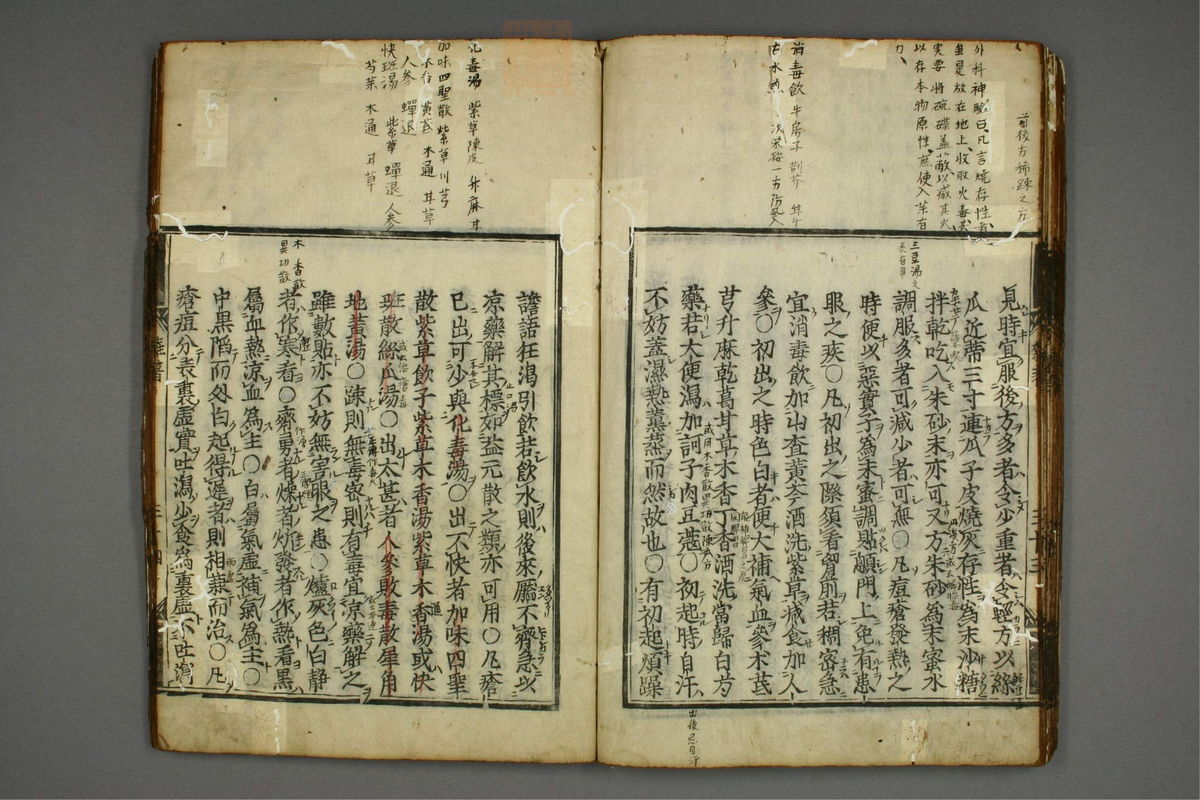 前後方稀踈之方
外科神驗曰凡言燒存性者
虽是放在地上收取火毒
实要將碗碟盖蔽以滅其火
以存本物原性庶使入茶有
力
消毒飲 牛房子 荆芥
右水煎 一方防風
三豆湯之
見時宜服後方多者令少重者令輕方以絲
瓜近蒂三寸連瓜子皮燒灰存性爲末沙糖
拌乾吃入朱砂末亦可又方朱砂爲末蜜水
調服多者可減少者可無○凡痘瘡發熱之
時便以惡實子爲末蜜調貼顖門上免有患
眼之疾○凡初出之際須看胷前若稠密急
宜消毒飲加山查黃芩酒洗紫草減食加人
參○初出之時色白者便大補氣血參朮芪
芎升麻乾葛甘草木香丁香酒洗當歸白芍
藥若大便瀉加訶子肉豆蔻○初起時自汗
不妨蓋濕熱薰蒸而然故也○有初起煩躁
或用木香散異功散陳
出後忌自汗
化毒湯 紫草 陳皮 升麻 甘
加味四聖散 紫草 川芎
木香 黃芪 木通 甘草
人參 蟬退
快班湯 紫草 蟬退 人參
芍藥 木通 甘草
木香散
異功散
譫語狂渴引飲若飲水則後來靨不齊急以
凉藥解其標如益元散之類亦可用○凡瘡
已出可少與化毒湯○出不快者加味四聖
散紫草飲子紫草木香湯紫草木香湯或快
班散絲瓜湯○出太甚者人參敗毒散犀角
地黃湯○踈則無毒密則有毒宜凉藥解之
雖數貼亦不妨無害眼之患○爐灰色白静
者作寒看○齊勇者燥者焮發者作熱看黑
屬血熱凉血爲主○白屬氣虛補氣爲主○
中黑陷而外白起得遲者則相兼而治○凡
瘡痘分表裏虛實吐瀉少食爲裏虛不吐瀉